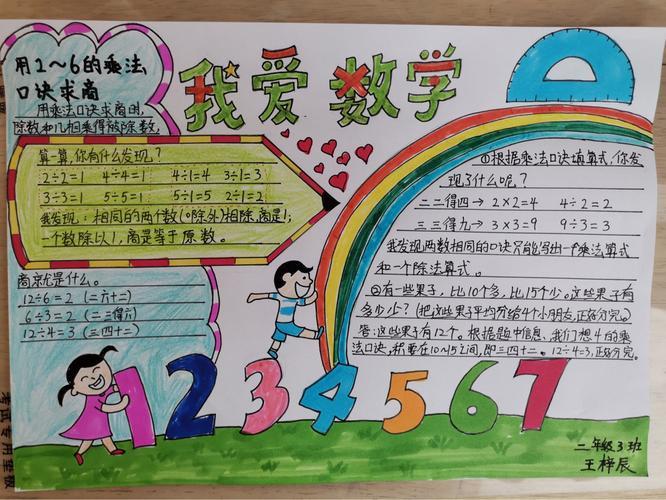 我爱数学
用2～6的乘法
口诀求商
用乘法口诀求商时,
除数和几相乘得被除数.
算一算,你有什么发现?
2÷2=1 4÷4=1 4÷1=4 3÷1=3
3÷3=1 5÷5=1 5÷1=5 2÷1=2
我发现:相同的两个数(0除外)相除,商是1;
一个数除以1,商是等于原数。
商京就是什么。
12÷6=2 (二六十二)
6÷3=2 (二三得六)
12÷4=3 (三四十二)
①根据乘法口诀填算式,你发
现了什么呢?
二二得四→2×2=4 4÷2=2
三三得九→3×3=9 9÷3=3
我发现两数相同的口诀只能写出一个乘法算式
和一个除法算式。
②有一些果子,比10个多,比15个少。这些果子有
多少个?(把这些果子平均分给4个小朋友,正好分完。)
答:这些果子有12个。根据题中信息、我们想4的乘
法口诀,积要在10～15之间,即三四十二。12÷4=3,正好分完。
1 2 3 4 5 6 7
二年级3班
王梓辰
考试专用垫板